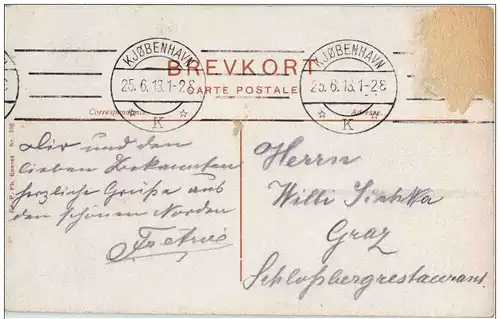 KJØBENHAVN
25.6.13.1-2E
K
KJØBENHAVN
25.6.13.1-2E
K
BREVKORT
CARTE POSTALE
Correspondance
Adresse
Dir und den
lieben Bekannten
herzliche Grüße aus
dem schönen Norden
Herrn
Willi
Graz
Schloßbergrestaurant